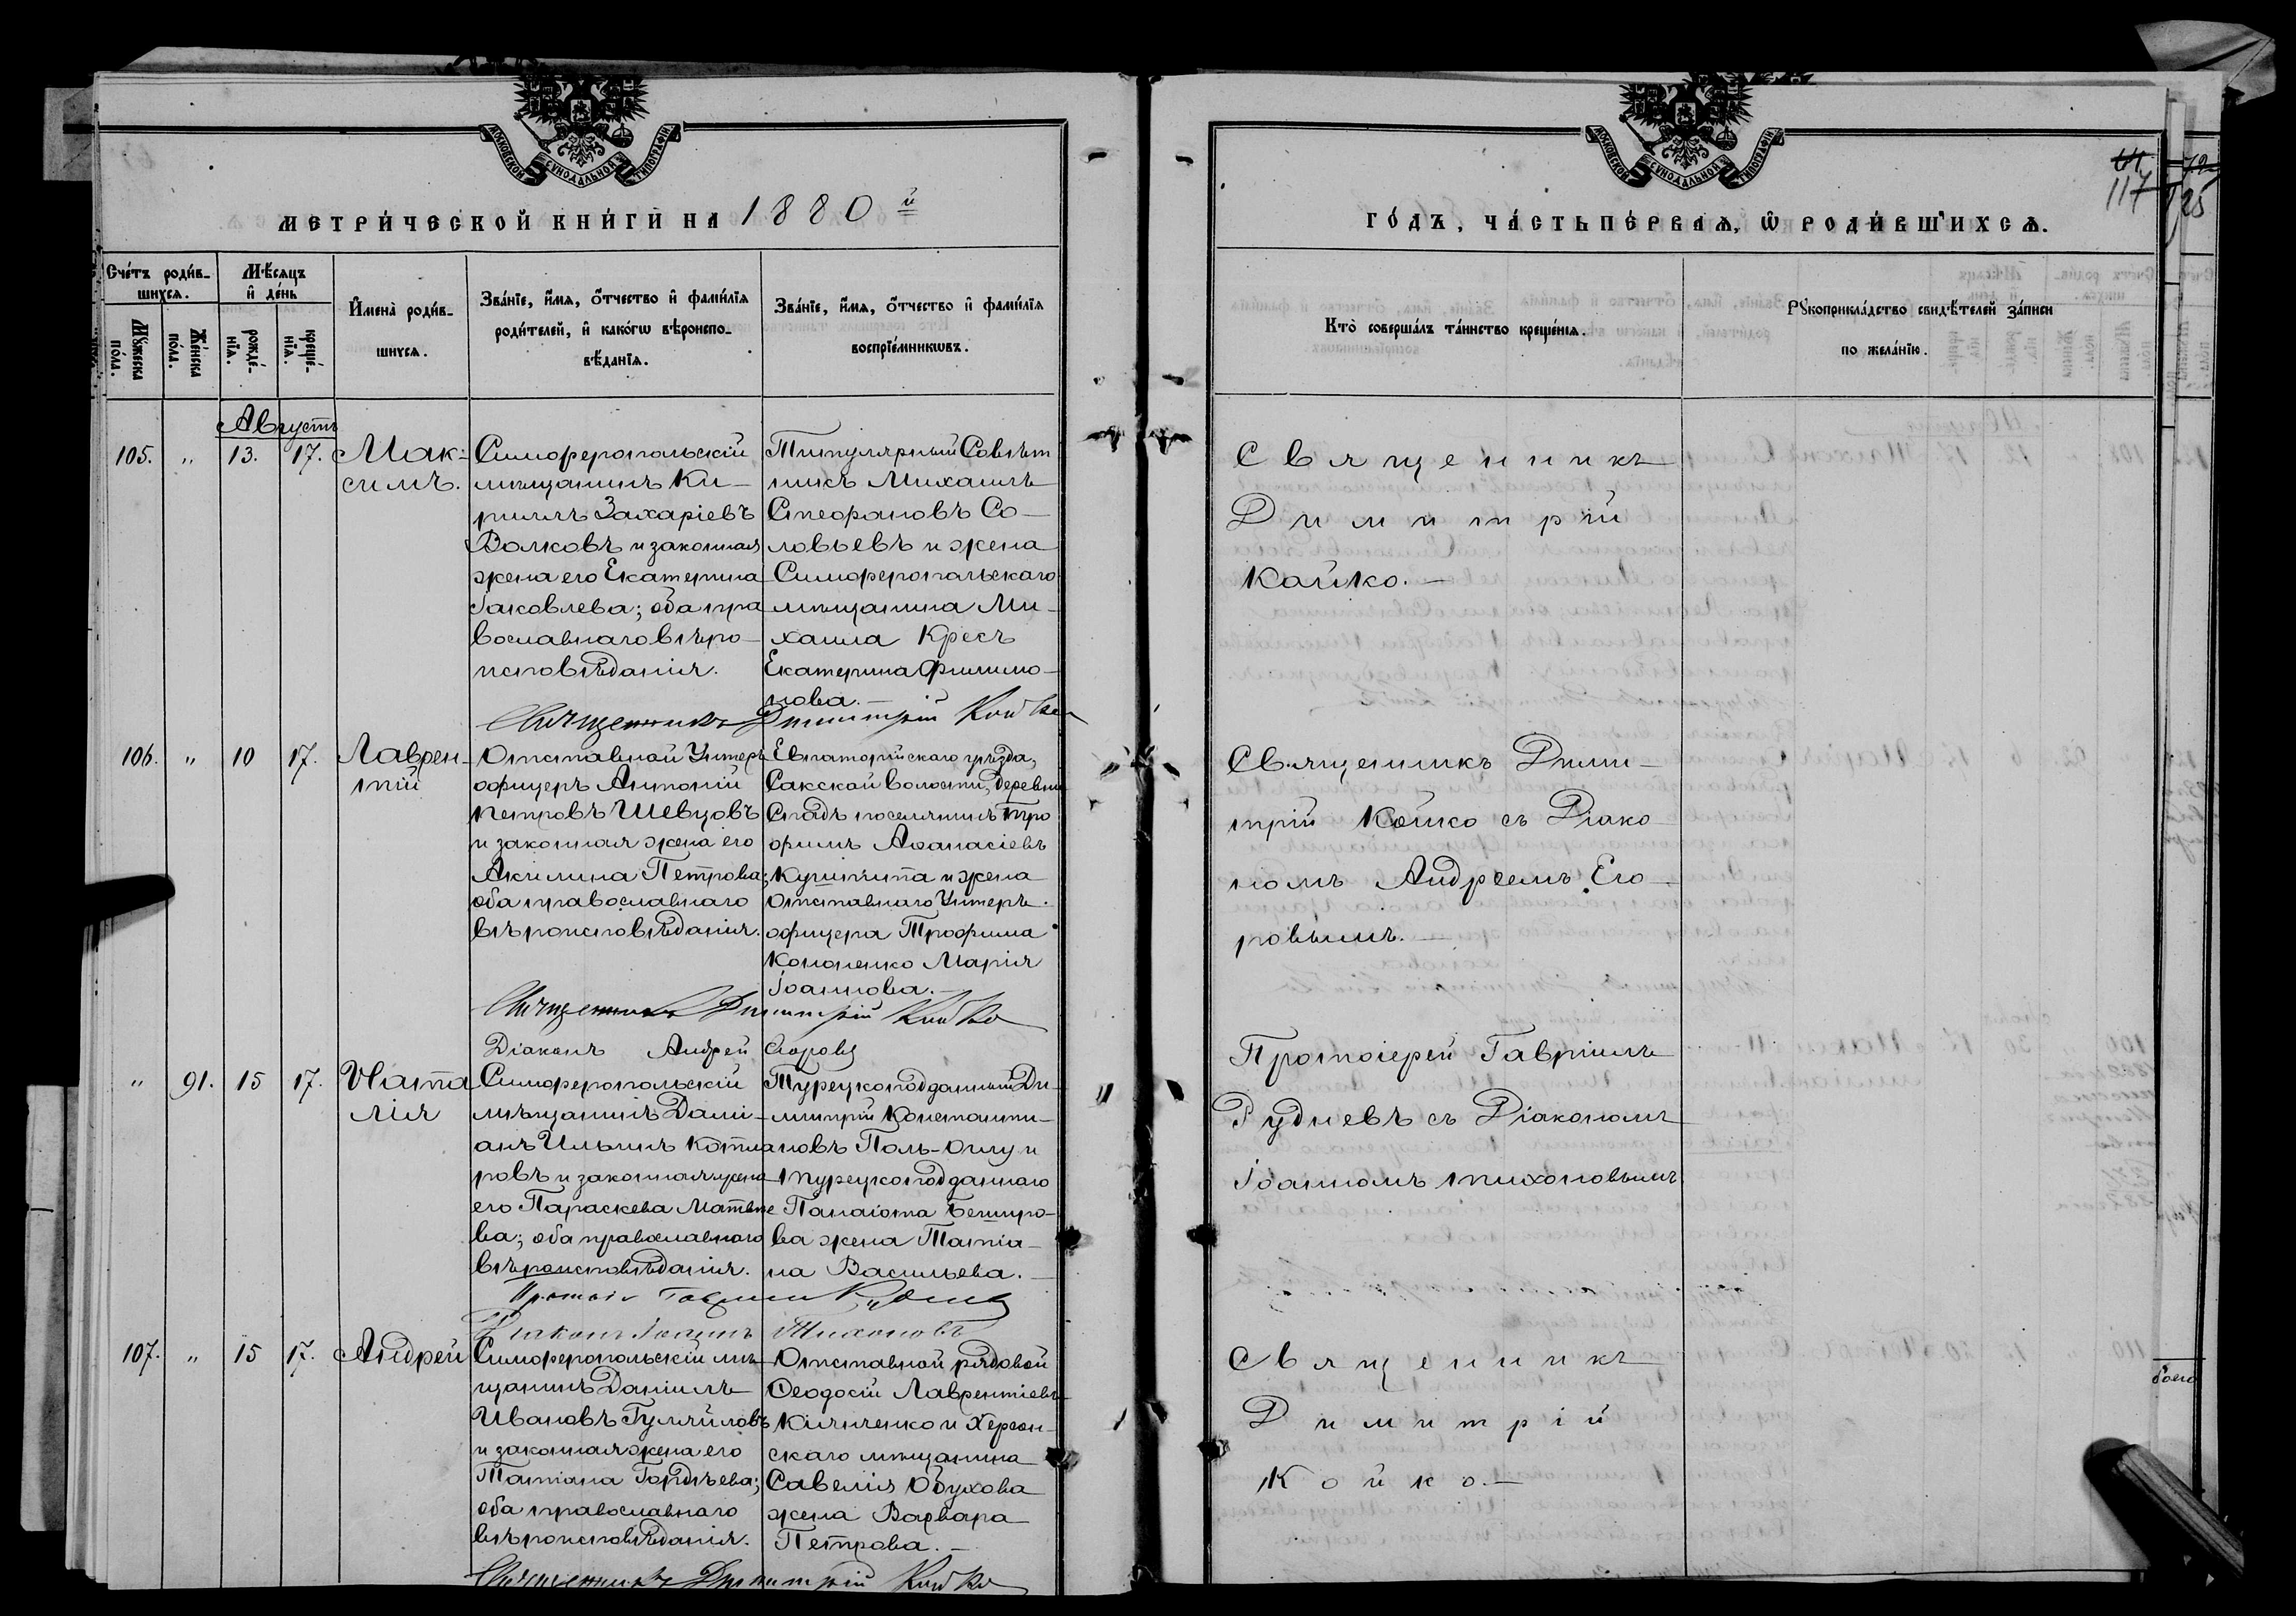 МОСКОВСКОЙ СѴНОДАЛЬНОЙ ТИПОГРАФІИ
МЕТРИ́ЧЕСКОЙ КНИ́ГИ НА 1880й
Сче́тъ роди́вшихся.
Мѣ́сяцъ и де́нь
Мꙋ́жеска по́ла.
Же́нска по́ла.
рожде́нїя.
креще́нїя.
И҆мена̀ роди́вшихся.
Зва́нїе, и҆́мя, о҆́тчество и҆ фами́лїя
роди́телей, и҆ како́гѡ вѣроиспо-
вѣ́данїя.
Зва́нїе, и҆́мя, о҆́тчество и҆ фами́лїя
воспрїе́мникѡвъ.
Августъ
105. " 13. 17. Мак-
симъ.
Симферопольскій
мѣщанинъ Ки-
риллъ Захаріевъ
Волковъ и законная
жена его Екатерина
Іаковлева; оба пра
вославнаго вѣро-
исповѣданія.
Титулярный Совѣт
никъ Михаилъ
Стефановъ Со-
ловьевъ и жена
Симферопольскаго
мѣщанина Ми-
хаила Кресъ
Екатерина Филимо-
нова.—
Священникъ Димитрій Койко
106. " 10 17. Лаврен-
тій
Отставной Унтеръ
офицеръ Антоній
Петровъ Шевцовъ
и законная жена его
Акилина Петрова;
оба православнаго
вѣроисповѣданія.
Евпаторійскаго уѣзда,
Сакской волости, деревни
поселянинъ Тро
фимъ Аѳанасіевъ
и жена
Отставнаго Унтеръ-
офицера Трофима
Кононенко Марія
Іоаннова.—
Священникъ Димитрій Койко
Діаконъ Андрей Егоровъ
" 91. 15 17. Ната
лія
Симферопольскій
мѣщанинъ Дамі-
анъ Ильинъ Котля
ровъ и законная жена
его Параскева Матвѣе
ва; оба православнаго
вѣроисповѣданія.
Турецкоподданный Ди-
митрій Константи-
новъ Поль-Оглу и
турецкоподданнаго
Панаіота
ва жена Татіа-
на Васильева.—
Протоіе Гавріилъ Рудневъ
Діаконъ Іоаннъ Тихоновъ
107. " 15 17. Андрей
Симферопольскій мѣ-
щанинъ Даніилъ
Ивановъ
и законная жена его
Татіана Гордѣева;
оба православнаго
вѣроисповѣданія.
Отставной рядовой
Ѳеодосій Лаврентіевъ
Кличенко и Херсон-
скаго мѣщанина
Савелія Обухова
жена Варвара
Петрова.—
Священникъ Димитрій Койко
МОСКОВСКОЙ СѴНОДАЛЬНОЙ ТИПОГРАФІИ
117
125
ГО́ДЪ, ЧА́СТЬ ПЕ́РВАЯ, Ѡ҆ РОДИ́ВШИХСЯ.
Кто̀ соверша́лъ та́инство креще́нїя.
Рꙋкоприкла́дство свидѣ́телей за́писи
по жела́нїю.
Священникъ
Димитрій
Койко.—
Священникъ Дими-
трій Койко съ Діако
номъ Андреемъ Его-
ровымъ.—
Протоіерей Гавріилъ
Рудневъ съ Діакономъ
Іоанномъ Тихоновымъ
Священникъ
Димитрій
Койко.—